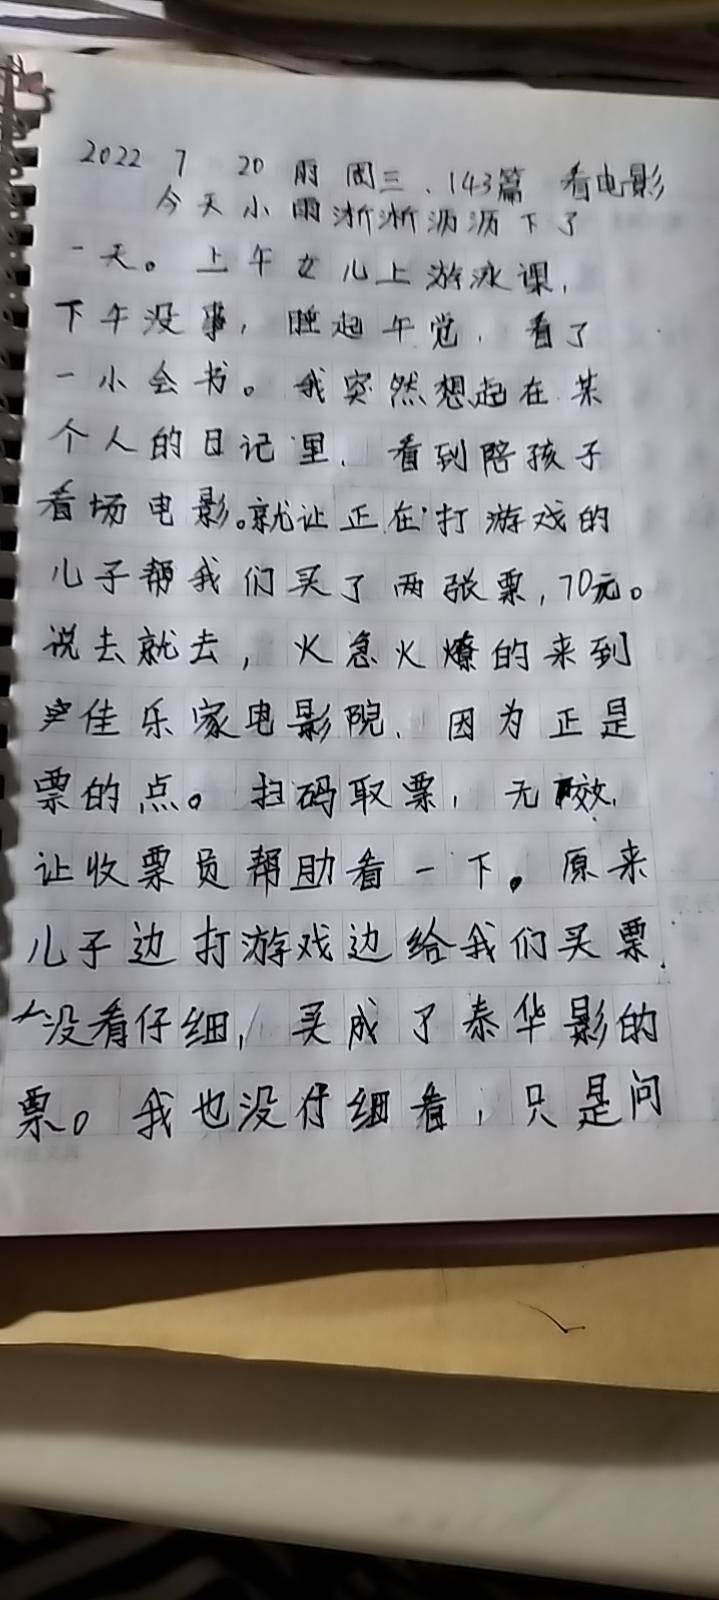 2022 7 20 雨 周三.143篇 看电影
今天小雨淅淅沥沥下了
一天。上午女儿上游泳课,
下午没事,睡起午觉,看了
一小会书。我突然想起在某
个人的日记里,看到陪孩子
看场电影。就让正在打游戏的
儿子帮我们买了两张票,70元。
说去就去,火急火燎的来到
佳乐家电影院,因为正是
票的点。扫码取票,无效,
让收票员帮助看一下。原来
儿子边打游戏边给我们买票,
没看仔细,买成了泰华影的
票。我也没仔细看,只是问